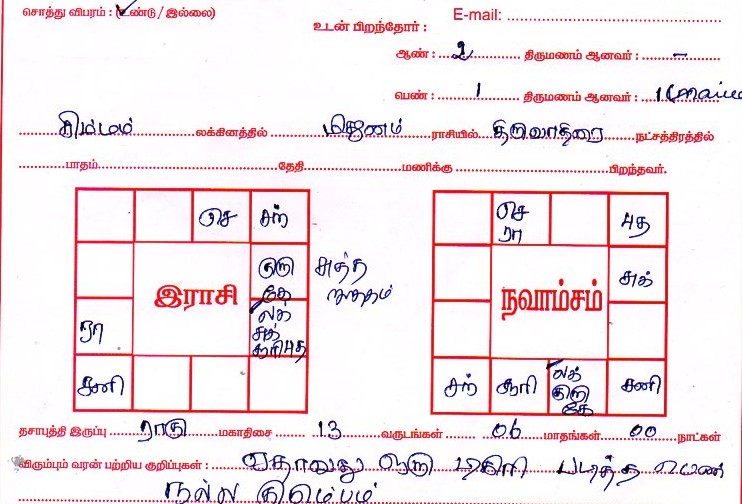 சொத்து விபரம் : (உண்டு / இல்லை)
E-mail:
உடன் பிறந்தோர் :
ஆண் : 2 திருமணம் ஆனவர் : –
பெண் : 1 திருமணம் ஆனவர் : 1
சிம்மம் லக்கினத்தில் மிதுனம் ராசியில் திருவாதிரை நட்சத்திரத்தில்
பாதம் தேதி மணிக்கு பிறந்தவர்.
செ சந்
குரு
கே
இராசி
ரா
லக்
சுக்
சூரி புத
சனி
செ
ரா
புத
சுக்
நவாம்சம்
சந் சூரி
லக்
குரு
கே
சனி
தசாபுத்தி இருப்பு ராகு மகாதிசை 13 வருடங்கள் 06 மாதங்கள் 00 நாட்கள்
விரும்பும் வரன் பற்றிய குறிப்புகள் : ஏதாவது ஒரு டிகிரி படித்த பெண்
நல்ல குடும்பம்